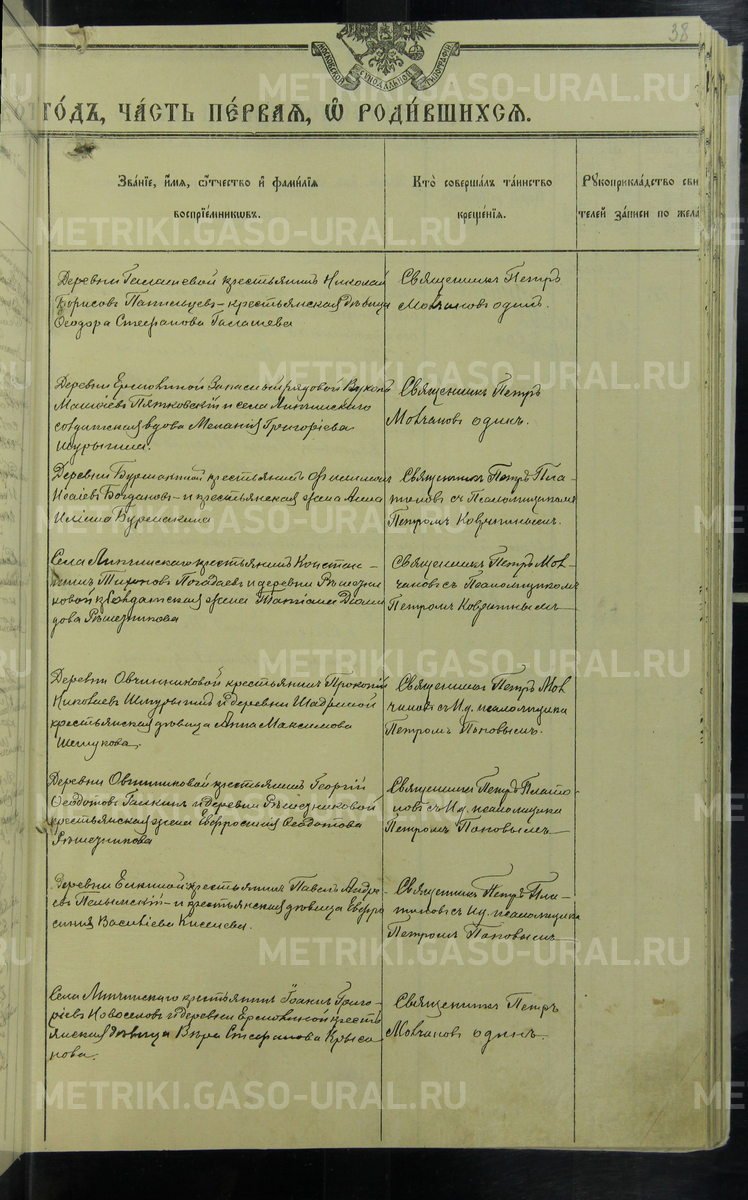 38
МОСКОВСКОЙ СѴНОДАЛЬНОЙ ТИПОГРАФІИ
ГО́ДЪ, ЧА́СТЬ ПЕ́РВАЯ, Ѡ҆ РОДИ́ВШИХСЯ.
Зва́нїе, и҆́мя, ѻ҆́тчество и҆ фами́лїя
воспрїе́мникѡвъ.
Кто̀ соверша́лъ та́инство
креще́нїя.
Рꙋкоприкла́дство сви
телей за́писи по жела
Деревни Галашевой крестьянинъ Николай
Борисовъ - крестьянская дѣвица
Ѳеодора Стефанова Галашева
Священникъ Петръ
Молчановъ одинъ.
Деревни Ермолиной Запасной рядовой
Пятковскій и села Липчинскаго
солдатская вдова Меланія Григоріева
Шурыгина.
Священникъ Петръ
Молчановъ одинъ.
Деревни Бурмакиной крестьянинъ Филиппъ
Исаіевъ Богдановъ - и крестьянская жена Анна
Ильина Бурмакина
Священникъ Петръ Пла-
тоновъ съ Псаломщикомъ
Петромъ
Села Липчинскаго крестьянинъ Констан-
тинъ Тихоновъ Погадаевъ и деревни Рѣшетни
ковой солдатская жена Татіана Діоми
дова Рѣшетникова
Священникъ Петръ Мол-
чановъ съ Псаломщикомъ
Петромъ
Деревни Овчинниковой крестьянинъ Прокопій
Николаевъ и деревни Шадриной
крестьянская дѣвица Анна Максимова
Шешукова.
Священникъ Петръ Мол
чановъ съ И.д. псаломщика
Петромъ Поповымъ.
Деревни Овчинниковой крестьянинъ Георгій
Ѳеодотовъ Галкинъ и деревни Рѣшетниковой
крестьянская жена Евфросинія Ѳеодотова
Рѣшетникова
Священникъ Петръ Плато-
новъ съ И.д. псаломщика
Петромъ Поповымъ
Деревни крестьянинъ Павелъ Андре-
евъ Пелымскій - и крестьянская дѣвица Евфро
синія Василіева Киселева.
Священникъ Петръ Пла-
тоновъ съ И.д. псаломщика
Петромъ Поповымъ
Села Липчинскаго крестьянинъ Іоаннъ Григо-
ріевъ Новоселовъ и деревни Ермолиной крестья
янская дѣвица Вѣра Стефанова Крыса
нова.
Священникъ Петръ
Молчановъ одинъ.
METRIKI.GASO-URAL.RU